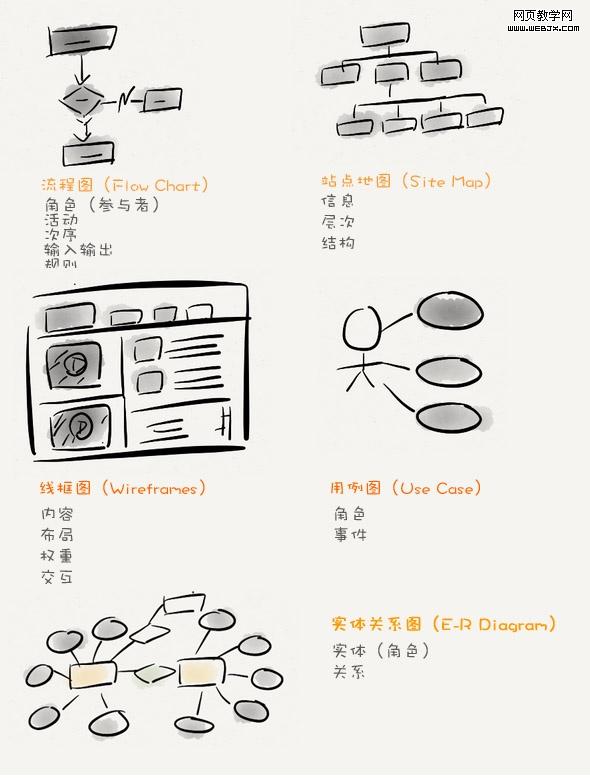 网页教学网
www.WEBJX.com
流程图（Flow Chart）
角色（参与者）
活动
次序
输入输出
规则
站点地图（Site Map）
信息
层次
结构
线框图（Wireframes）
内容
布局
权重
交互
用例图（Use Case）
角色
事件
实体关系图（E-R Diagram）
实体（角色）
关系